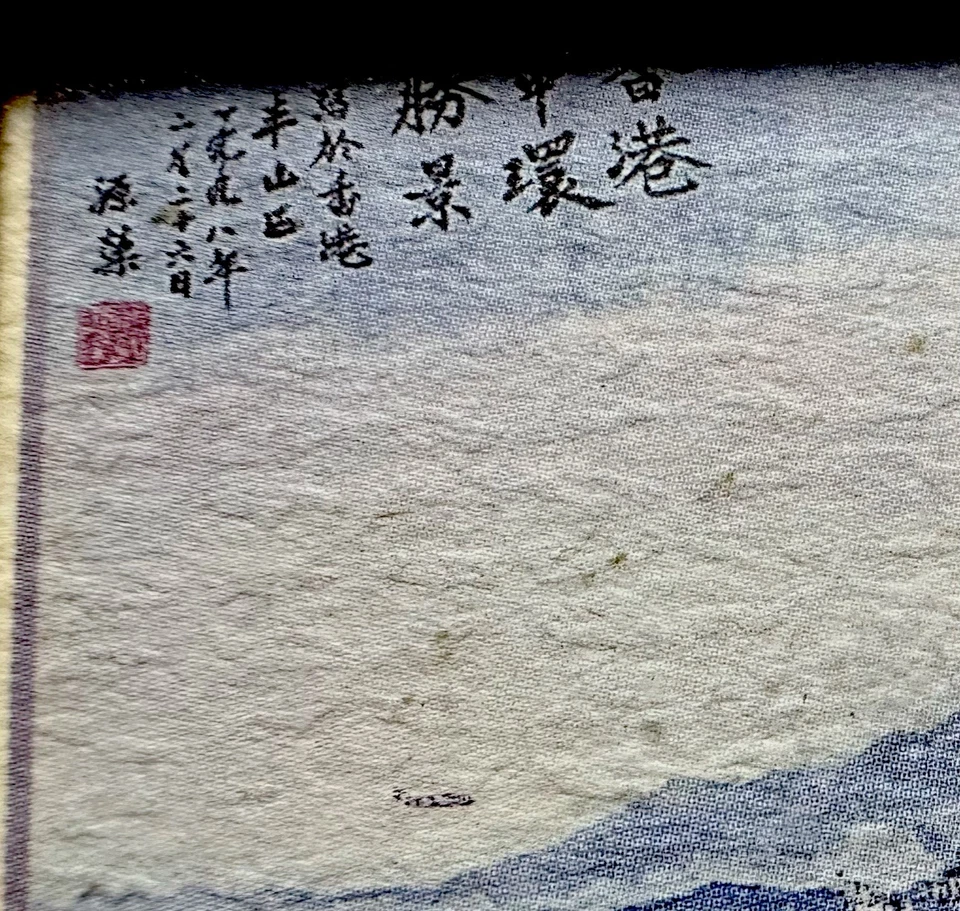 香港
中環
勝景
於香港
半山区
一九九八年
二月二十六日